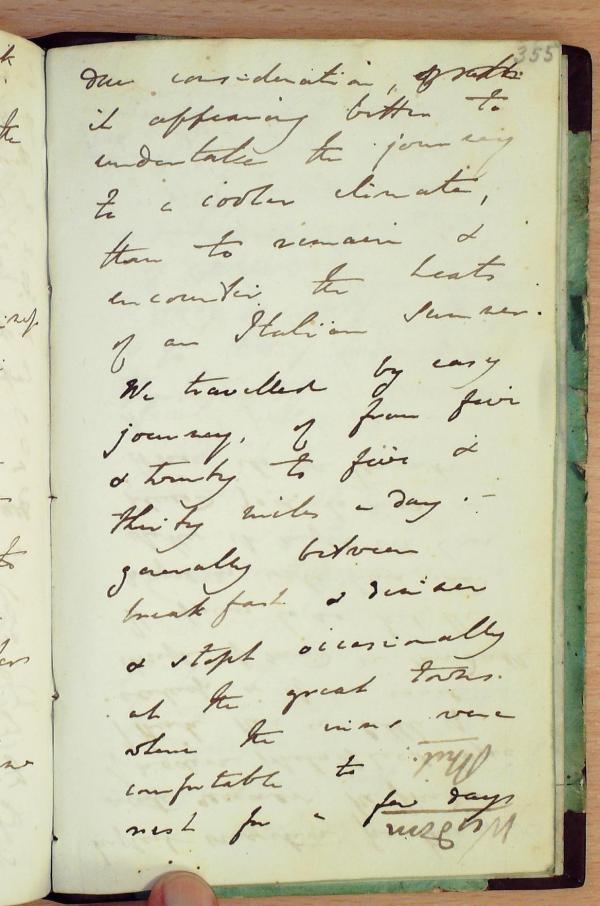 355
due consideration,
it appearing better to
undertake the journey
to a cooler climate,
than to remain &
encounter the heats
of an Italian Summer.
We travelled by easy
journeys, of from five
& twenty to five &
thirty miles a day. -
generally between
breakfast & dinner
& stopt occasionally
at the great towns.
where the inns were
comfortable to
rest for a few days